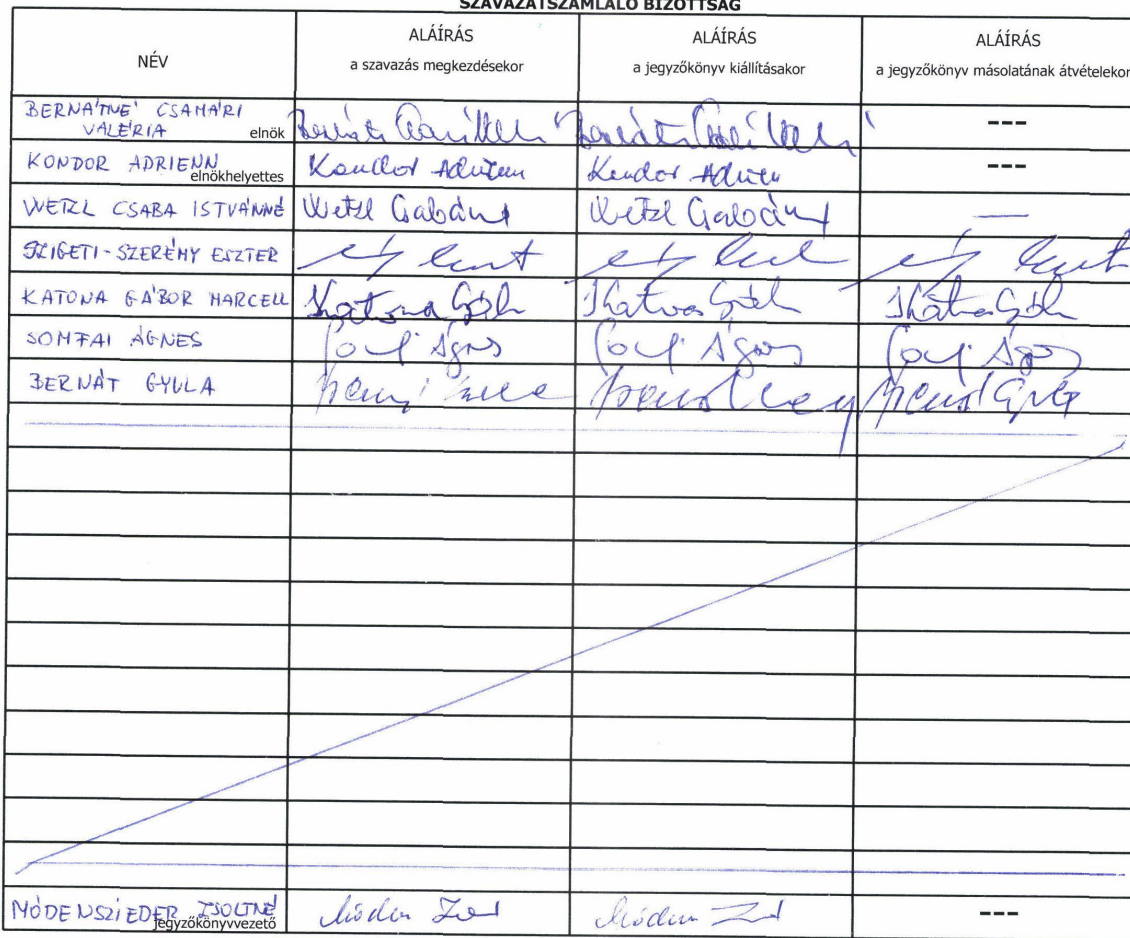 SZAVAZATSZÁMLÁLÓ BIZOTTSÁG
NÉV
ALÁÍRÁS
a szavazás megkezdésekor
ALÁÍRÁS
a jegyzőkönyv kiállításakor
ALÁÍRÁS
a jegyzőkönyv másolatának átvételekor
BERNÁTNÉ CSAMÁRI
VALÉRIA elnök ---
KONDOR ADRIENN elnökhelyettes Kondor Adrienn Kondor Adrienn ---
WETZL CSABA ISTVÁNNÉ Wetzl Csabáné Wetzl Csabáné —
SZIGETI-SZERÉMY ESZTER
KATONA GÁBOR MARCELL Katona Gábor Katona Gábor Katona Gábor
SOMFAI ÁGNES Ágnes Ágnes Ágnes
BERNÁT GYULA
MÓDENSZIEDER ZSOLTNÉ jegyzőkönyvvezető ---